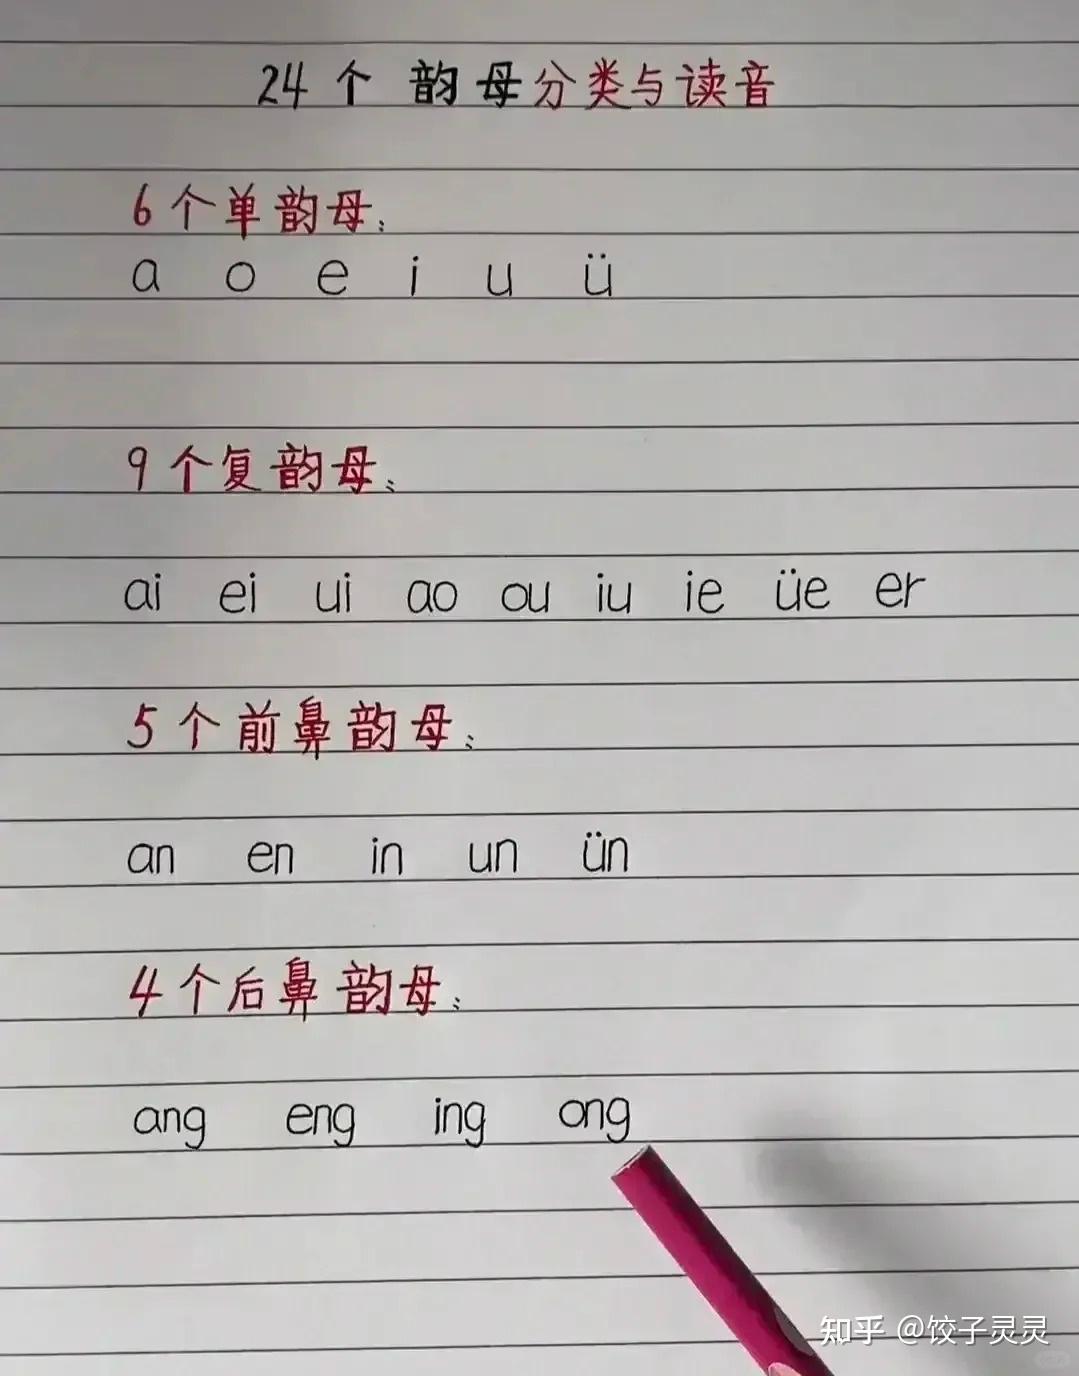 24个 韵母分类与读音
6个单韵母:
a o e i u ü
9个复韵母:
ai ei ui ao ou iu ie üe er
5个前鼻韵母:
an en in un ün
4个后鼻韵母:
ang eng ing ong
知乎 @饺子灵灵